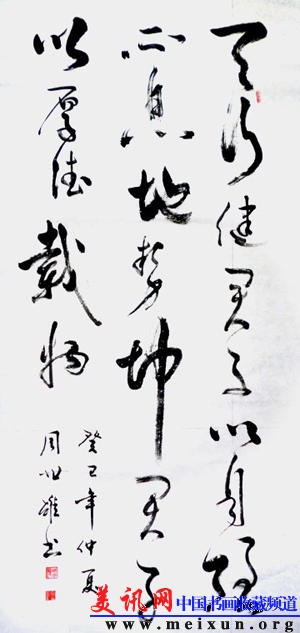 天行健君子以自强
不息地势坤君子
以厚德載物
癸巳年仲夏
周世雄书
美讯网 中国书画收藏频道
www.meixun.org